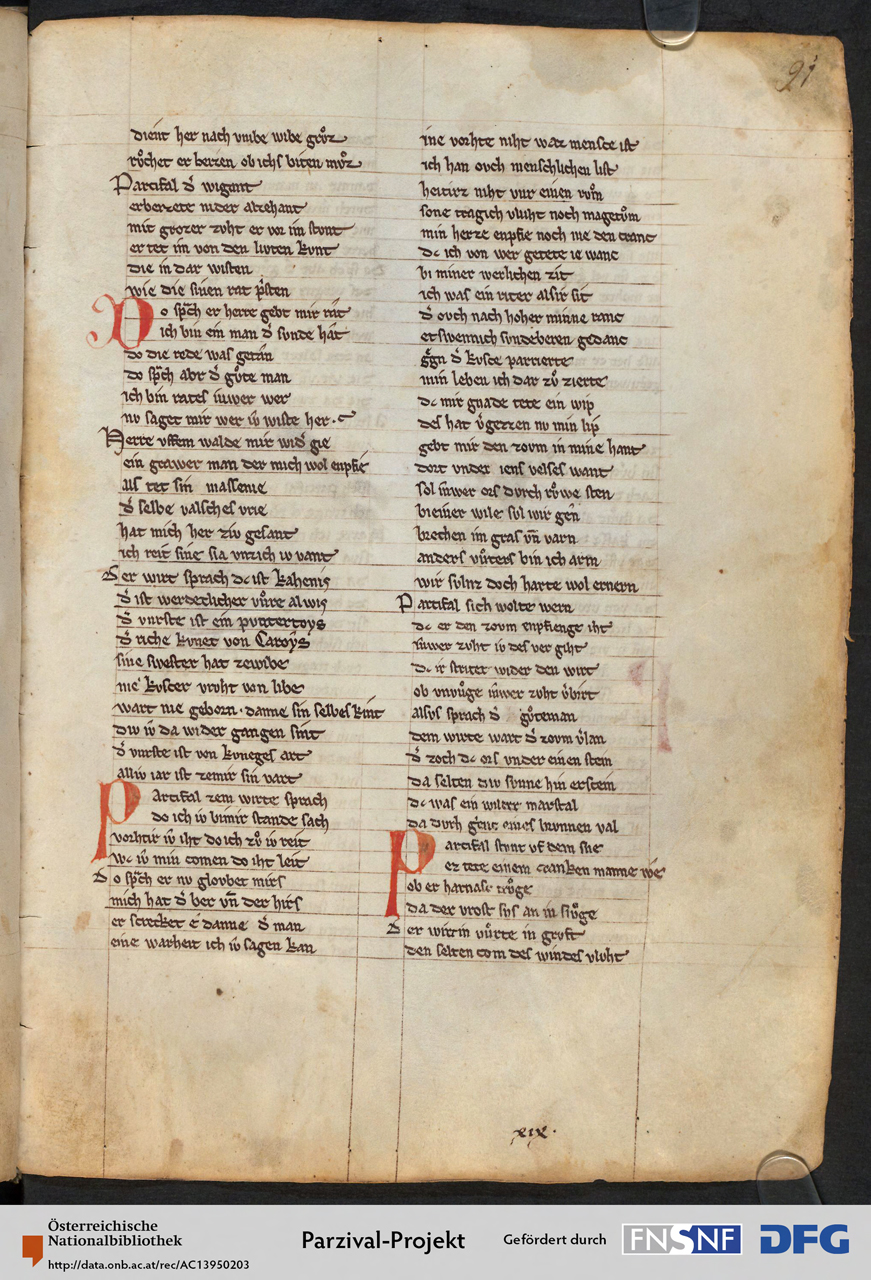 91
dient her nach vmbe wibe grůz
růchet er berzen ob ichs biten můz
Partifal d᷑ wigant
erbeizete nider alzehant
mit grozer zvht er vor im stvnt
er tet im von den livten kvnt
die in dar wisten
wie die sinen rat p᷑sten
Do sp᷑ch er herre gebt mir rat
ich bin ein man d᷑ svnde hat
do die rede was getan
do sp᷑ch abr d᷑ gůte man
ich bin rates iwer wer
nv saget mir wer iv wiste her
Herre vffem walde mir wid᷑ gie
ein grawer man der mich wol enpfie
als tet sin massenie
d᷑ selbe valsches vrie
hat mich her ziv gesant
ich reit sine sla vntz ich iv vant
Der wirt sprach dc ist kahenis
d᷑ ist werdeclicher vůre al wis
d᷑ vurste ist ein pvntertoys
d᷑ riche kvnec von Caroys
sine swester hat zewibe
nie kvscer vrvht von libe
wart nie geborn danne sin selbes kint
div iv da wider gangen sint
d᷑ vurste ist von kvneges art
alliv iar ist zemir sin vart
Partifal zem wirte sprach
do ich iv vor mir stande sach
vorhtir iv iht do ich zů iv reit
wc iv min comen do iht leit
Do sp᷑ch er nv glovbet mirs
mich hat d᷑ ber vn̄ der hirs
er screcket e danne d᷑ man
eine warheit ich iv sagen kan
ine vorhte niht waz mensce ist
ich han ovch menschlichen list
hetirz niht vur einen rvm
sone trag ich vluht noch magetům
min herze enpfie noch nie den cranc
dc ich von wer getete ie wanc
bi miner werlichen zit
ich was ein riter als ir sit
d᷑ ovch nach hoher minne ranc
etswennich svndeberen gedanc
gegn d᷑ kvsce parrierte
min leben ich dar zů zierte
dc mir gnade tete ein wip
des hat v᷑gezzen nv min lip
gebt mir den zovm in mine hant
dort vnder iens velses want
sol iwer ors dvrch růwe sten
bi einer wile svl wir gen
brechen im gras vn̄ varn
anders vůters bin ich arm
wir svlnz doch harte wol ernern
Partifal sich wolte wern
dc er den zovm enpfienge iht
iwer zvht iv des ver giht
dc ir stritet wider den wirt
ob vnvůge iwer zvht v᷑birt
alsvs sprach d᷑ gůteman
dem wirte wart d᷑ zovm v᷑lan
d᷑ zoch dc ors vnder einen stein
da selten div svnne hin erscein
dc was ein wilder marstal
da dvrch genc eines brvnnen val
Partifal stvnt vf dem sne
ez tete einem cranken manne we
ob er harnasc trůge
da der vrost svs an in slůge
Der wirt in vůrte in grvft
den selten com des windes vlvht
xix
Österreichische
Nationalbibliothek
http://data.onb.ac.at/rec/AC13950203
Parzival-Projekt
Gefördert durch
FNSNF
DFG